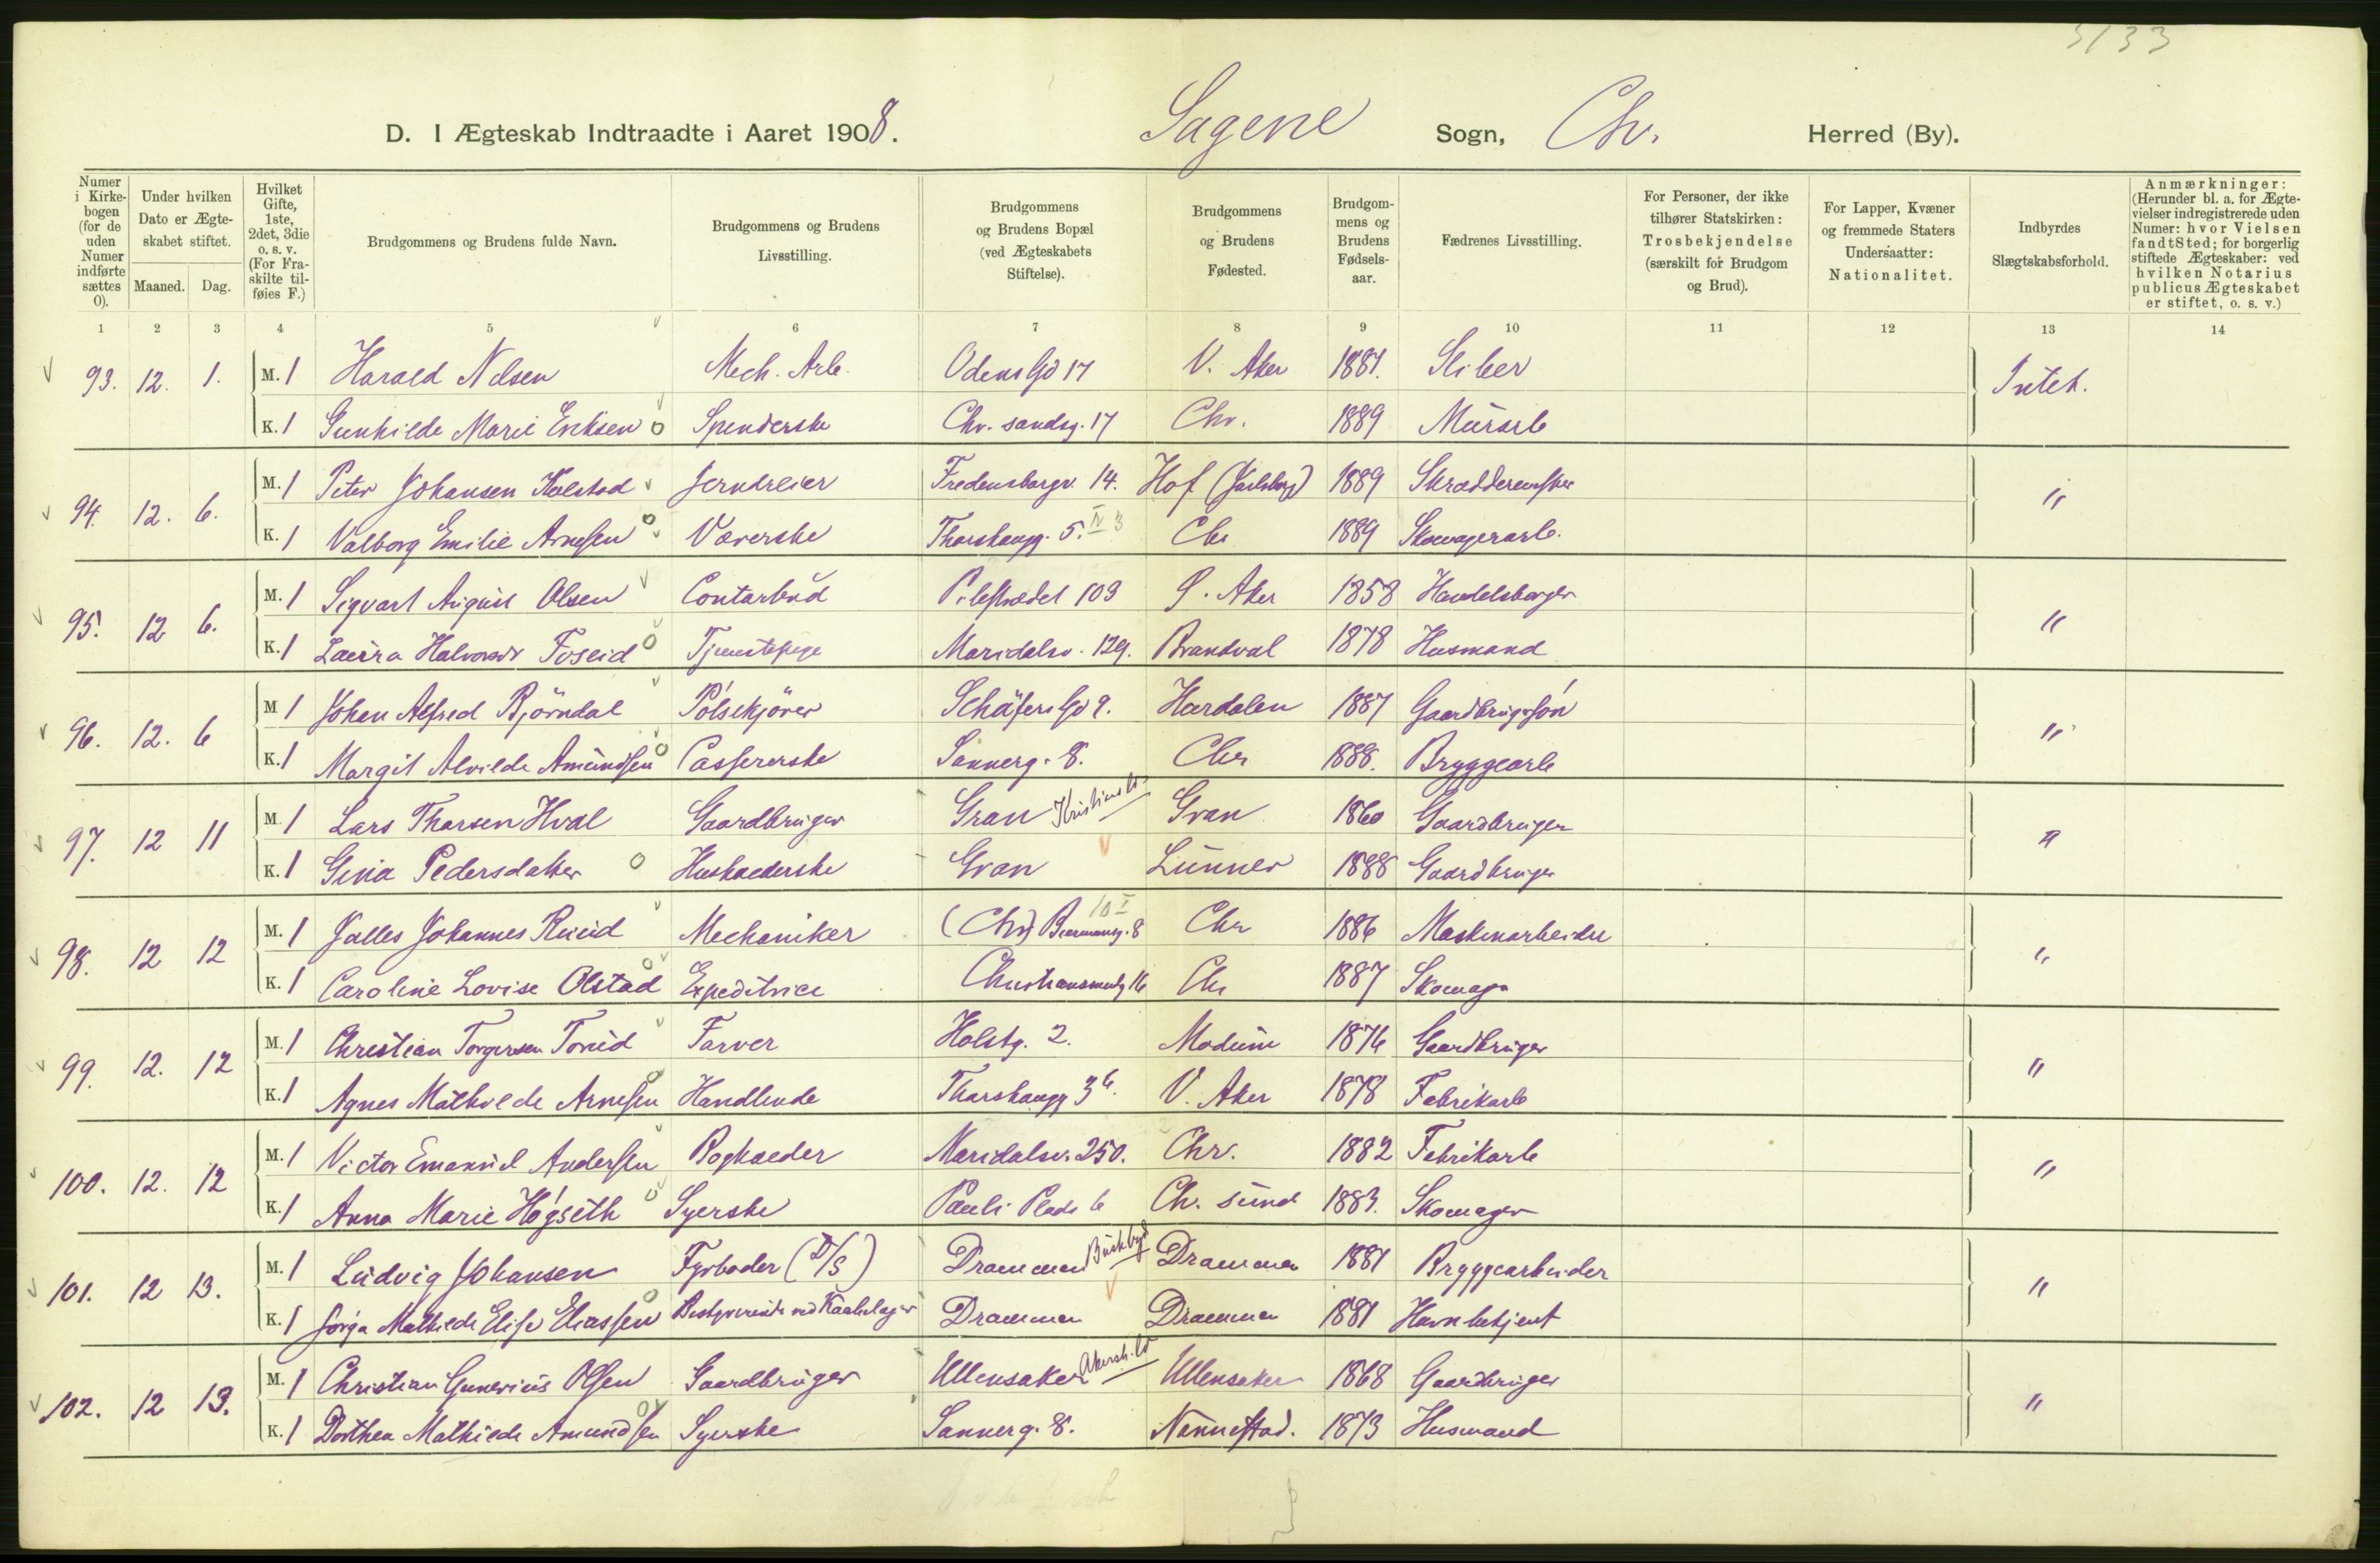 3133
D. I Ægteskab Indtraadte i Aaret 1908. Sagene Sogn, Chr. Herred (By).
Numer i Kirkebogen (for de uden Numer indførte sættes 0).
Under hvilken Dato er Ægteskabet stiftet.
Maaned. Dag.
Hvilket Gifte, 1ste, 2det, 3die o. s. v. (For Fraskilte tilføies F.)
Brudgommens og Brudens fulde Navn.
Brudgommens og Brudens Livsstilling.
Brudgommens og Brudens Bopæl (ved Ægteskabets Stiftelse).
Brudgommens og Brudens Fødested.
Brudgommens og Brudens Fødselsaar.
Fædrenes Livsstilling.
For Personer, der ikke tilhører Statskirken: Trosbekjendelse (særskilt for Brudgom og Brud).
For Lapper, Kvæner og fremmede Staters Undersaatter: Nationalitet.
Indbyrdes Slægtskabsforhold.
Anmærkninger: (Herunder bl. a. for Ægtevielser indregistrerede uden Numer: hvor Vielsen fandt Sted; for borgerlig stiftede Ægteskaber: ved hvilken Notarius publicus Ægteskabet er stiftet, o. s. v.)
1 2 3 4 5 6 7 8 9 10 11 12 13 14
93. 12. 1. M. 1 Harald Nilsen Mech. Arb. Odens Gd 17 V. Aker 1887. Sliber Intet.
K. 1 Gunhilde Marie Eriksen Spinderske Chr. sandsg. 17 Chr. 1889 Murarb
94. 12. 6. M. 1 Peter Johansen Kolstad Jerndreier Fredensborgv. 14. Hof (Jarlsberg) 1889 Skræddermester "
K. 1 Valborg Emilie Arnesen Væverske Thorshaugg. 5. IV 3 Chr 1889 Skomagerarb.
95. 12 6. M. 1 Sigvart August Olsen Contorbud Pilestrædet 103 Ø. Aker 1858 Handelsborger "
K. 1 Laura Halvorsdr Foseid Tjenestepige Maridalsv. 129. Brandval 1878 Husmand
96. 12. 6 M 1 Johan Alfred Bjørndal Pølsekjører Schäfers Gd 9. Hurdalen 1887 Gaardbruger "
K. 1 Margit Alvilde Amundsen Cassererske Sannerg. 8. Chr 1888. Bryggearb
97. 12 11 M. 1 Lars Thorsen Hval Gaardbruger Gran Kristians A. Gran 1860 Gaardbruger "
K. 1 Gina Pedersdatter Husholderske Gran Lunner 1888 Gaardbruger
98. 12 12 M. 1 Jalles Johannes Mechaniker (Chr) Biermannsg. 8 10 I Chr 1886 Maskinarbeider "
K. 1 Caroline Lovise Olstad Expeditrice 16 Chr 1887 Skomager
99. 12. 12 M. 1 Christian Torgersen Farver Holstg. 2. Modum 1876 Gaardbruger "
K. 1 Agnes Mathilde Arnesen Handlende Thorshaugg 3 b. V. Aker 1878 Fabrikarb
100. 12. 12 M. 1 Victor Emanuel Andersen Bogholder Maridalsv. 250. Chr. 1882 Fabrikarb "
K. 1 Anna Marie Høgseth Syerske Pauli Plads 6 Ch. sund 1883. Skomager
101. 12 13. M. 1 Ludvig Johansen Fyrbøder (D/S) Drammen Buskerud Drammen 1881 Bryggearbeider "
K. 1 Mathilde Elise Eliassen Drammen Drammen 1881 Havnbetjent
102. 12 13. M. 1 Christian Gunerius Olsen Gaardbruger Ullensaker Akersh. A. Ullensaker 1868 Gaardbruger "
K. 1 Dorthea Mathilde Amundsen Syerske Sannerg. 8. Nannestad. 1873 Husmand